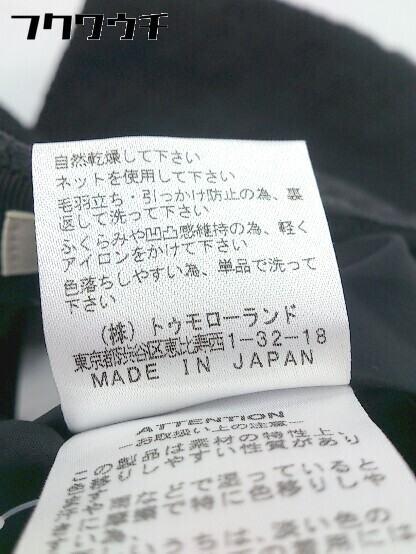 フクワウチ
自然乾燥して下さい
ネットを使用して下さい
毛羽立ち・引っかけ防止の為、裏
返して洗って下さい
ふくらみや凹凸感維持の為、軽く
アイロンをかけて下さい
色落ちしやすい為、単品で洗って
下さい
(株)トゥモローランド
東京都渋谷区恵比寿西1-32-18
MADE IN JAPAN
ATTENTION
―お取扱い上の注意―
の製品は素材の特性上、
しやすい性質があり
などで湿っていると
摩擦で特に色移りしや
うちは、淡い色の